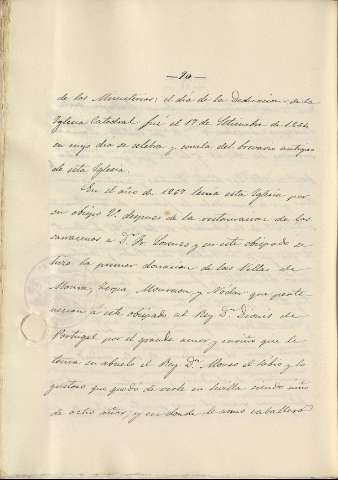 — 90 —
de los Musulmanes: el día de la Dedicacion de la
Iglesia Catedral fué el 17 de Setiembre de 1254
en cuyo dia se celebra y consta del brevario antiguo
de esta Iglesia.
En el año de 1267 tenia esta Iglesia por
su obispo 2º despues de la restauracion de los
sarracenos a Dⁿ Fr. Lorenzo y en este obispado se
hizo la primer donacion de las Villas de
Moura, Serpa, Mouraon y Nodar que perte
necian a este Obispado al Rey Dⁿ Dionis de
Portugal por el grande amor y cariño que le
tenia su abuelo el Rey Dⁿ Alonso el sabio y lo
gustoso que quedo de verle en Sevilla siendo niño
de ocho años, y en donde le armo caballero